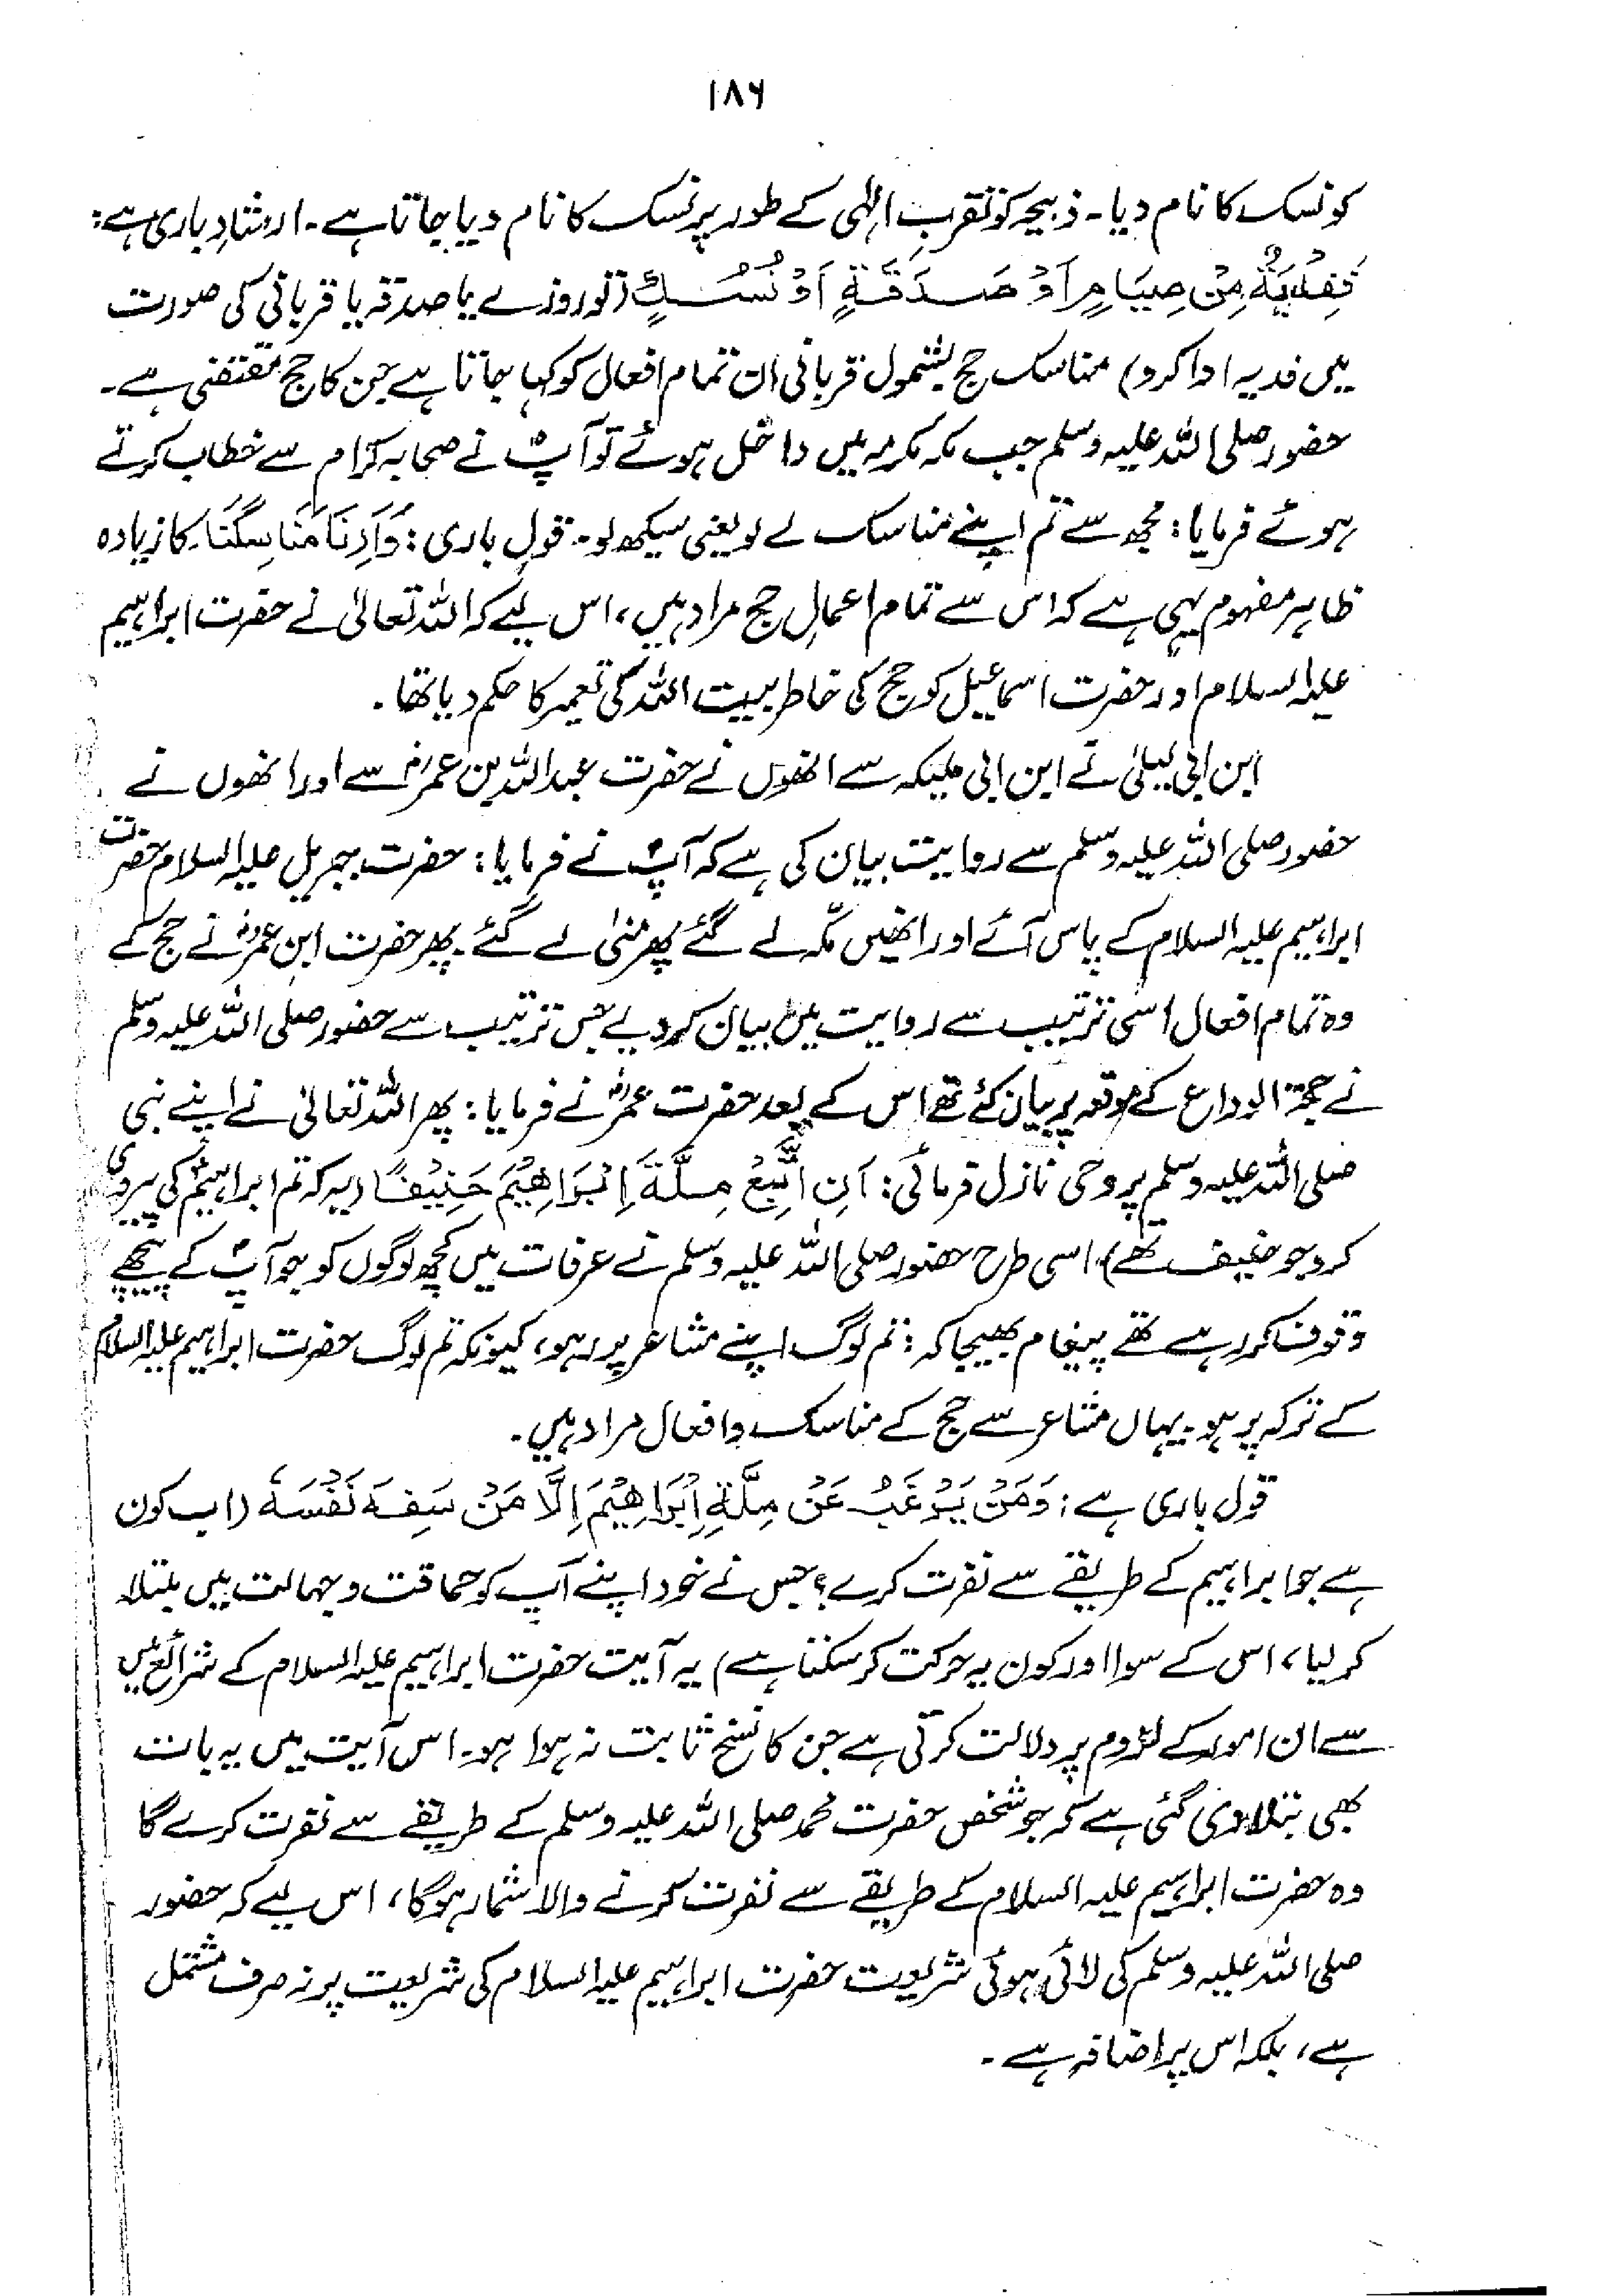 ۱۸۶
کو نسک کا نام دیا۔ ذبیحہ کو تقربِ الٰہی کے طور پر نسک کا نام دیا جاتا ہے۔ ارشادِ باری ہے:
فَفِدْيَةٌ مِنْ صِيَامٍ أَوْ صَدَقَةٍ أَوْ نُسُكٍ (تو روزے یا صدقہ یا قربانی کی صورت
میں فدیہ ادا کرو) مناسک حج بشمول قربانی ان تمام افعال کو کہا جاتا ہے جن کا حج مقتضی ہے۔
حضور صلی اللہ علیہ وسلم جب مکہ مکرمہ میں داخل ہوئے تو آپؐ نے صحابہ کرام سے خطاب کرتے
ہوئے فرمایا: مجھ سے تم اپنے مناسک لے لو یعنی سیکھ لو۔ قولِ باری: وَأَرِنَا مَنَاسِكَنَا۔ کا زیادہ
ظاہر مفہوم یہی ہے کہ اس سے تمام اعمالِ حج مراد ہیں، اس لیے کہ اللہ تعالیٰ نے حضرت ابراہیم
علیہ السلام اور حضرت اسماعیل کو حج کی خاطر بیت اللہ کی تعمیر کا حکم دیا تھا۔
ابن ابی لیلیٰ نے ابن ابی ملیکہ سے انھوں نے حضرت عبداللہ بن عمرؓ سے اور انھوں نے
حضور صلی اللہ علیہ وسلم سے روایت بیان کی ہے کہ آپؐ نے فرمایا: حضرت جبریل علیہ السلام حضرت
ابراہیم علیہ السلام کے پاس آئے اور انھیں مکّہ لے گئے پھر منیٰ لے گئے۔ پھر حضرت ابن عمرؓ نے حج کے
وہ تمام افعال اسی ترتیب سے روایت میں بیان کر دیے جس ترتیب سے حضور صلی اللہ علیہ وسلم
نے حجۃ الوداع کے موقعہ پر بیان کئے تھے اس کے بعد حضرت عمرؓ نے فرمایا: پھر اللہ تعالیٰ نے اپنے نبی
صلی اللہ علیہ وسلم پر وحی نازل فرمائی: أَنِ اتَّبِعْ مِلَّةَ إِبْرَاهِيْمَ حَنِيْفًا (یہ کہ تم ابراہیمؑ کی پیروی
کرو جو حنیف تھے)۔ اسی طرح حضور صلی اللہ علیہ وسلم نے عرفات میں کچھ لوگوں کو جو آپؐ کے پیچھے
وقوف کر رہے تھے پیغام بھیجا کہ: تم لوگ اپنے مشاعر پر رہو، کیونکہ تم لوگ حضرت ابراہیم علیہ السلام
کے ترکہ پر ہو۔ یہاں مشاعر سے حج کے مناسک و افعال مراد ہیں۔
قول باری ہے: وَمَنْ يَرْغَبُ عَنْ مِلَّةِ إِبْرَاهِيْمَ إِلَّا مَنْ سَفِهَ نَفْسَهٗ (اب کون
ہے جو ابراہیم کے طریقے سے نفرت کرے؟ جس نے خود اپنے آپ کو حماقت و جہالت میں مبتلا
کر لیا، اس کے سوا اور کون یہ حرکت کر سکتا ہے) یہ آیت حضرت ابراہیم علیہ السلام کے شرائع میں
سے ان امور کے لزوم پر دلالت کرتی ہے جن کا نسخ ثابت نہ ہوا ہو۔ اس آیت میں یہ بات
بھی بتلا دی گئی ہے کہ جو شخص حضرت محمد صلی اللہ علیہ وسلم کے طریقے سے نفرت کرے گا
وہ حضرت ابراہیم علیہ السلام کے طریقے سے نفرت کرنے والا شمار ہوگا، اس لیے کہ حضور
صلی اللہ علیہ وسلم کی لائی ہوئی شریعت حضرت ابراہیم علیہ السلام کی شریعت پر نہ صرف مشتمل
ہے، بلکہ اس پر اضافہ ہے۔